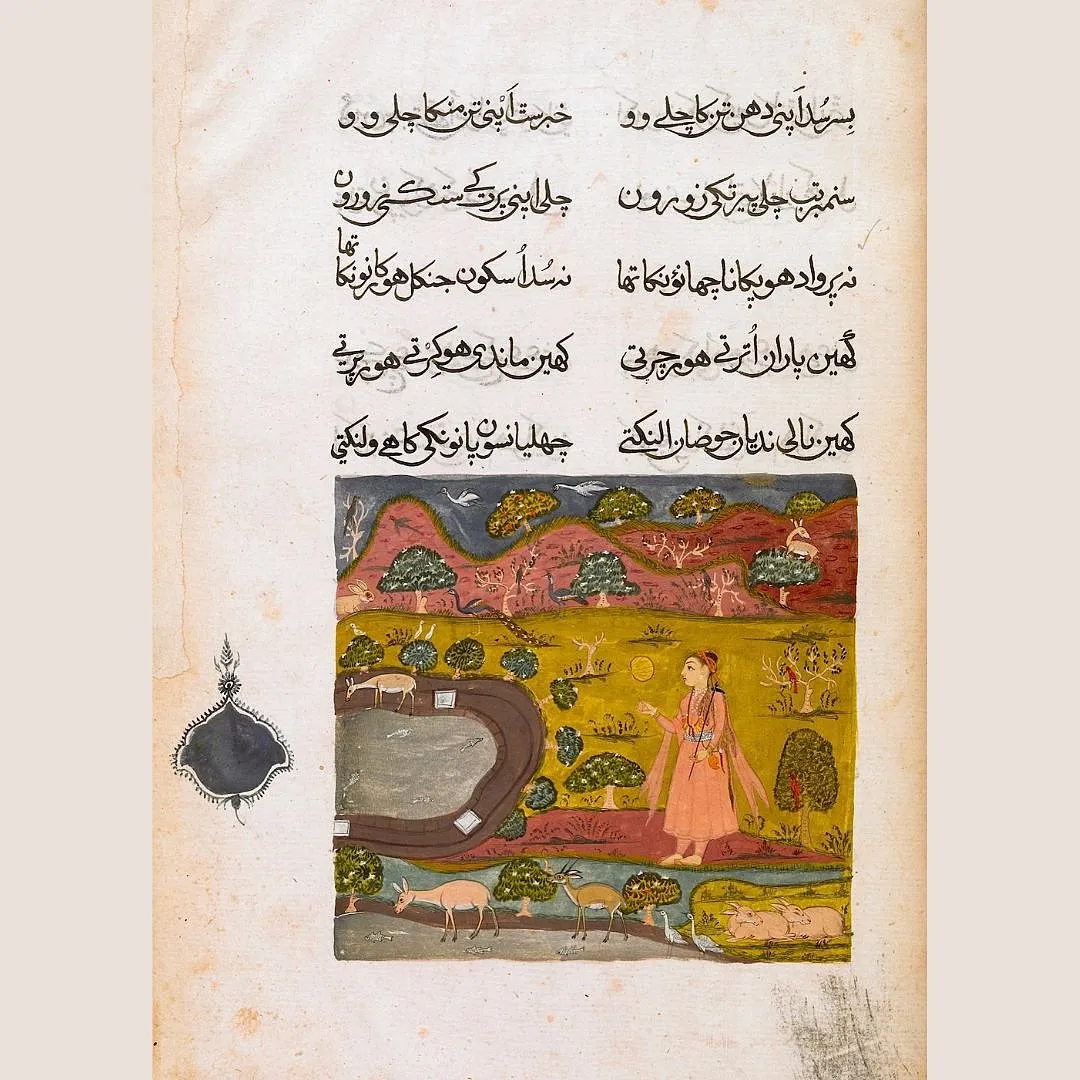 بسر سُد اَپنی دھن تن کا چلے وو خبر ست اَپنی تن منکا چلی وو
سنمبر تب چلی پیر تکی زورون چلی اپنی پرت کے ست کنی ورون
نہ پروا دھوپکا نا چھانؤنکا تھا نہ سُد اُسکون جنکل هور کانونکا تھا
کھین پاران اُترتے هور چرتی کھین ماندی هو کِرتے هور پرتے
کھین نالی ندیان حوضان النکتے چھلیا نسون پانونکی کاھے ولنکتی